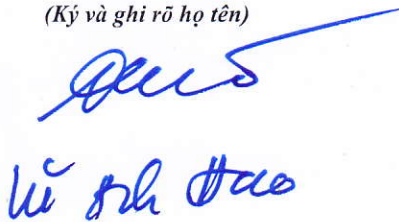 (Ký và ghi rõ họ tên)
Vũ Anh Hao